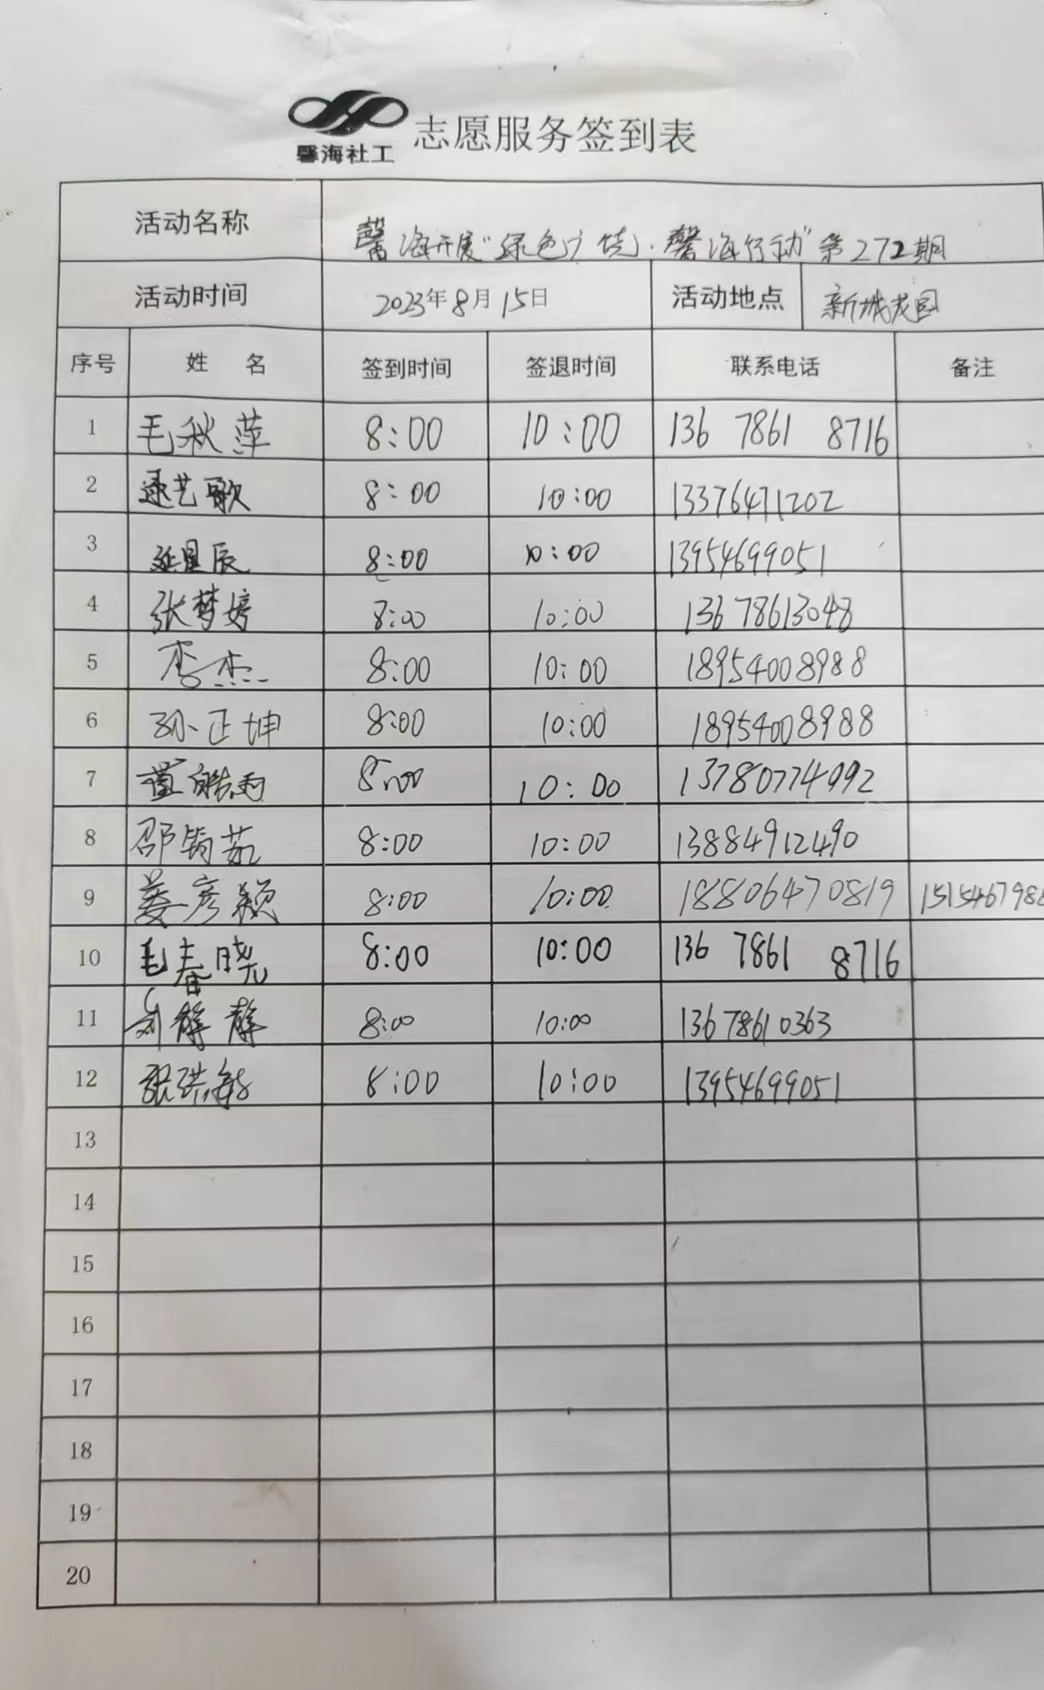 馨海社工
志愿服务签到表
活动名称 馨海开展"绿色广饶·馨海行动"第272期
活动时间 2023年8月15日 活动地点 新城花园
序号 姓 名 签到时间 签退时间 联系电话 备注
1 毛秋萍 8:00 10:00 136 7861 8716
2 逯艺歌 8:00 10:00 13376471202
3 延星辰 8:00 10:00 13954699051
4 张梦婷 8:00 10:00 13678613048
5 李杰 8:00 10:00 18954008988
6 孙正坤 8:00 10:00 18954008988
7 董皓雨 8:00 10:00 13780774992
8 邵筠茹 8:00 10:00 13884912490
9 姜彦颖 8:00 10:00 18806470819
10 毛春晓 8:00 10:00 136 7861 8716
11 刘静静 8:00 10:00 13678610363
12 张洪敏 8:00 10:00 13954699051
13
14
15
16
17
18
19
20